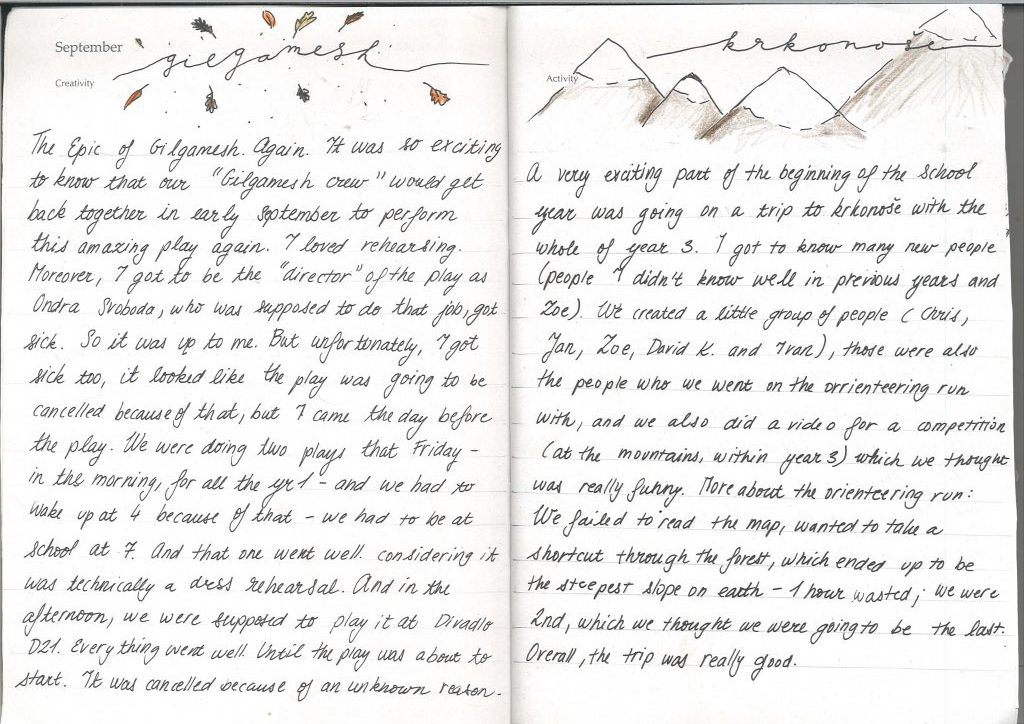 September
gilgamesh
Creativity
The Epic of Gilgamesh. Again. It was so exciting
to know that our "Gilgamesh crew" would get
back together in early September to perform
this amazing play again. I loved rehearsing.
Moreover, I got to be the "director" of the play as
Ondra Svoboda, who was supposed to do that job, got
sick. So it was up to me. But unfortunately, I got
sick too, it looked like the play was going to be
cancelled because of that, but I came the day before
the play. We were doing two plays that Friday -
in the morning, for all the yr1 - and we had to
wake up at 4 because of that - we had to be at
school at 7. And that one went well considering it
was technically a dress rehearsal. And in the
afternoon, we were supposed to play it at Divadlo
D21. Everything went well. Until the play was about to
start. It was cancelled because of an unknown reason.
krkonoše
Activity
A very exciting part of the beginning of the school
year was going on a trip to krkonoše with the
whole of year 3. I got to know many new people
(people I didn't know well in previous years and
Zoe). We created a little group of people (Chris,
Jan, Zoe, David K. and Ivan), those were also
the people who we went on the orrienteering run
with, and we also did a video for a competition
(at the mountains, within year 3) which we thought
was really funny. More about the orienteering run:
We failed to read the map, wanted to take a
shortcut through the forest, which ended up to be
the steepest slope on earth - 1 hour wasted; we were
2nd, which we thought we were going to be the last.
Overall, the trip was really good.